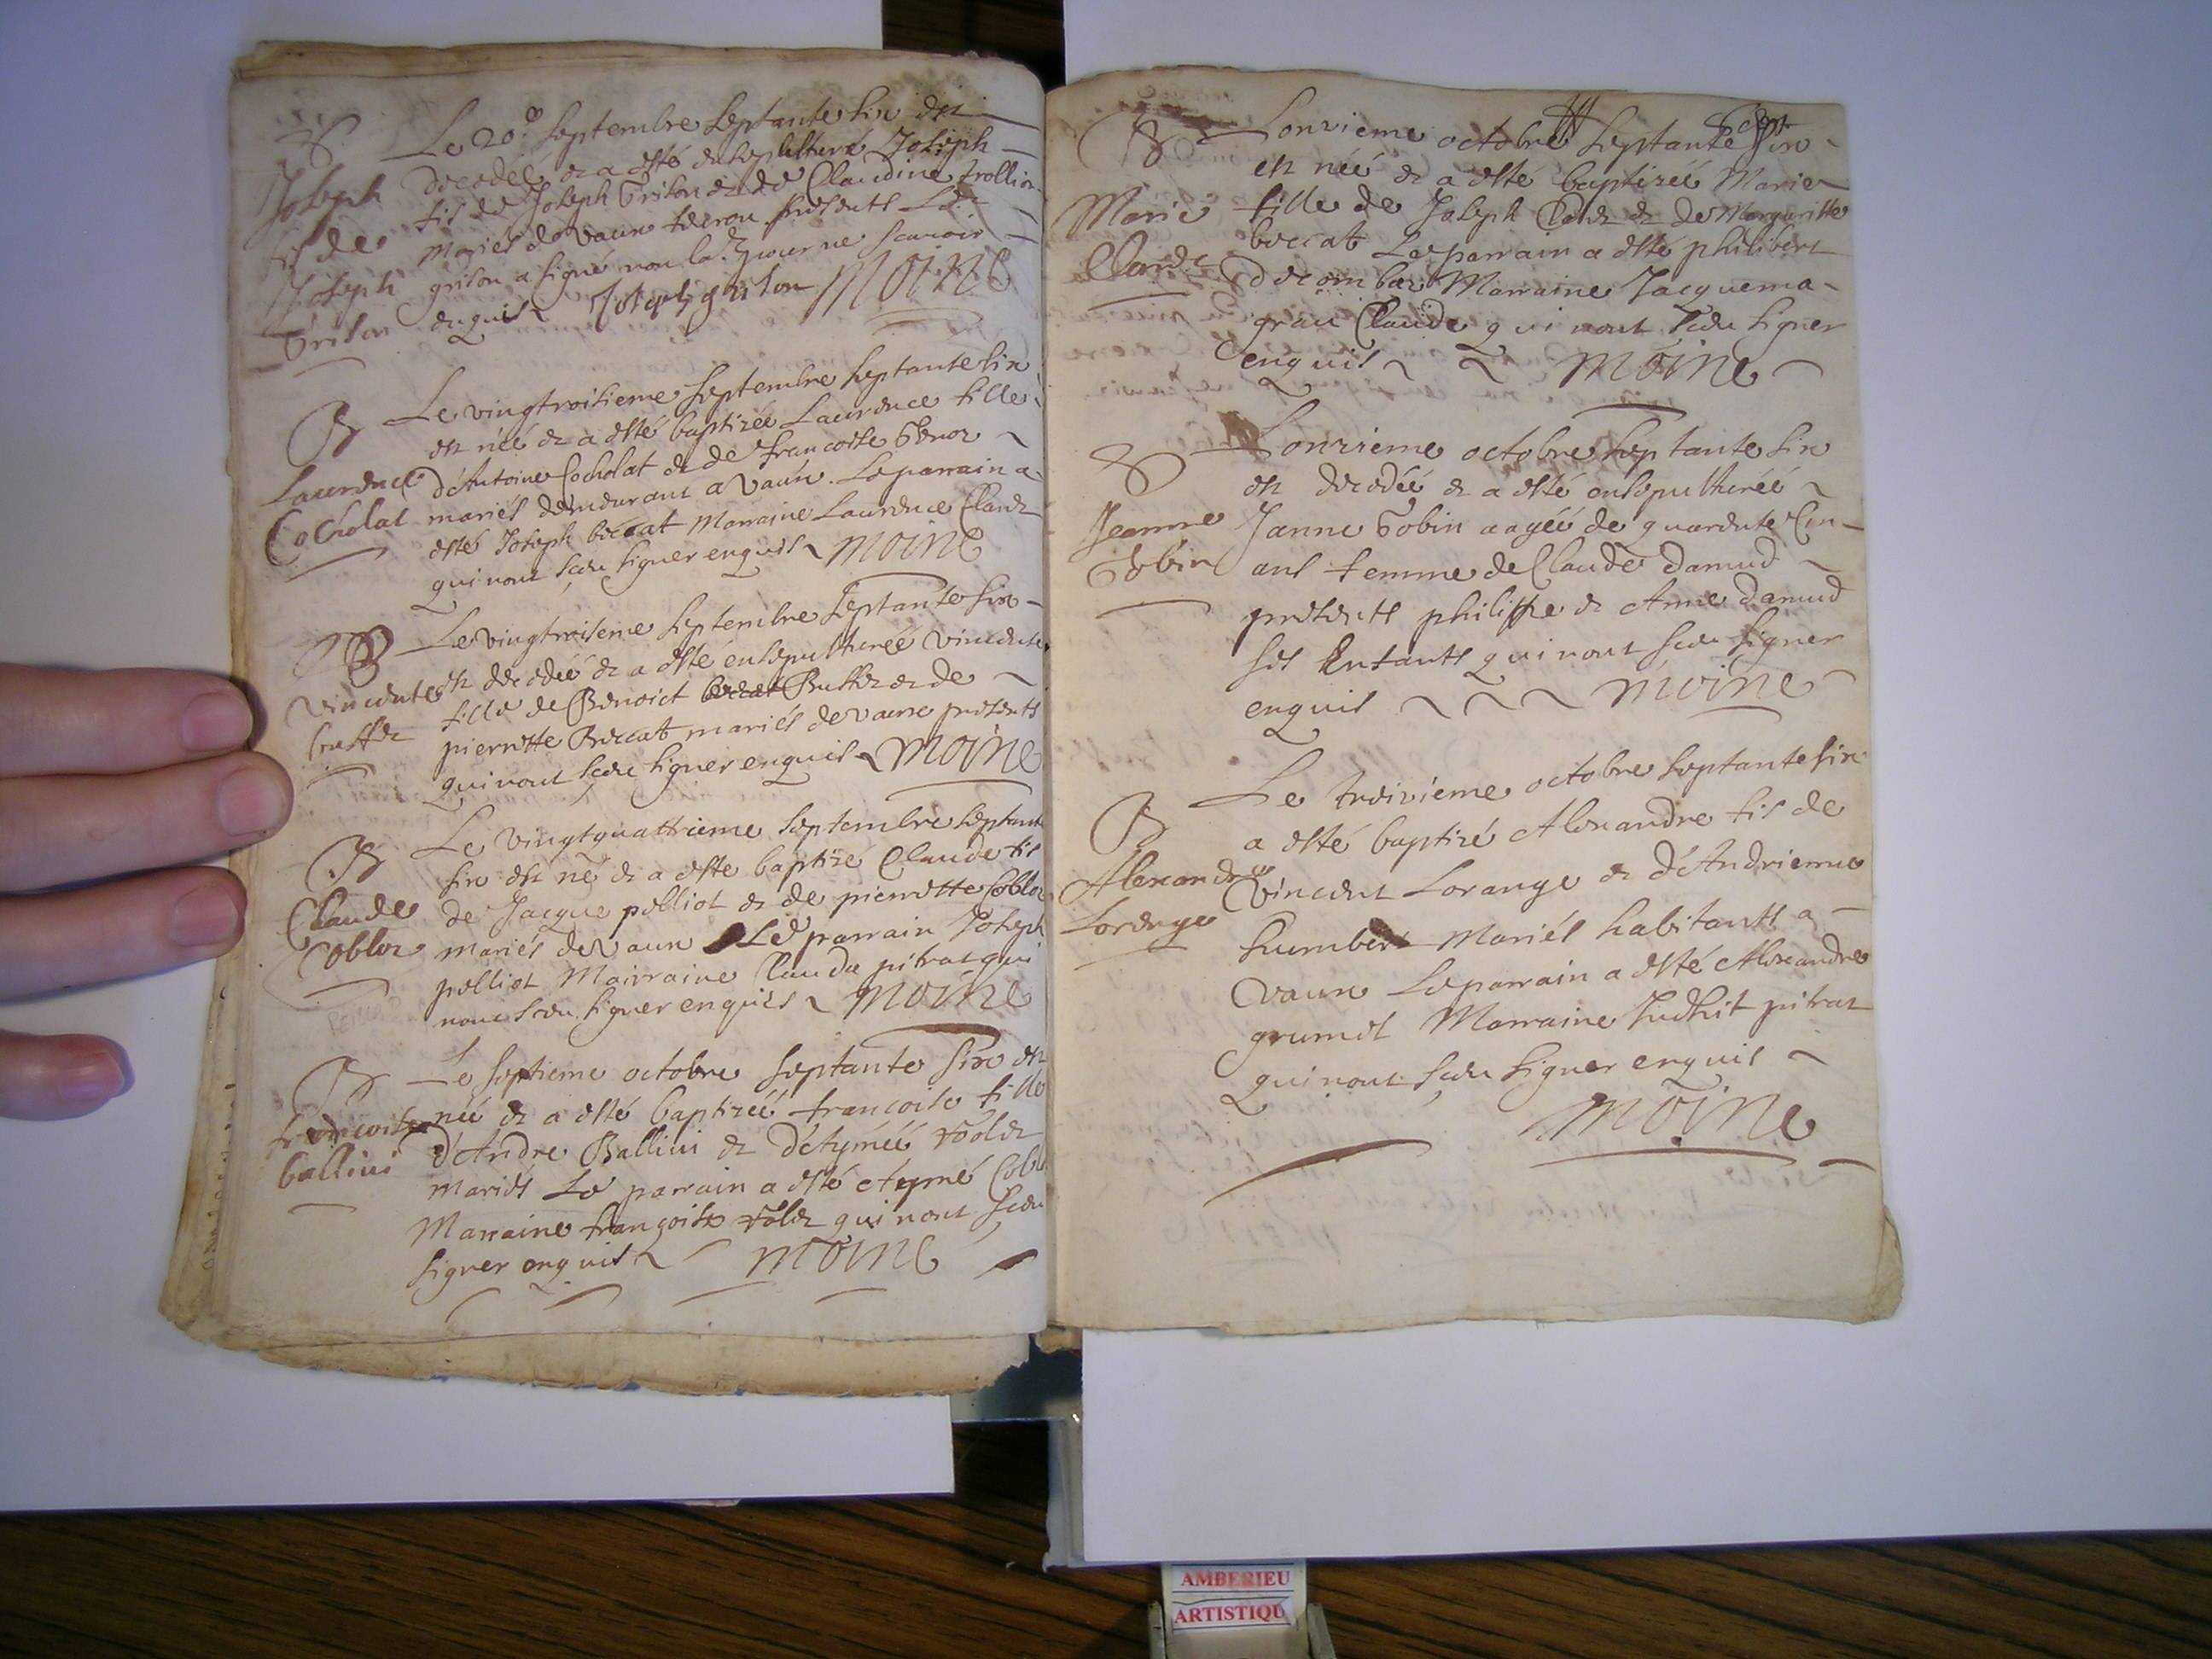 S
Joseph
fis de
Joseph
Grison
Le 20e Septembre Septante six est
decedéé & a esté ensepulturé Joseph
fis de Joseph Grison & de Claudine
Mariés de Vaux presents Ledt
grison a signé non la
enquis Joseph grison Moine
B
Laurence
Cocholat
Le vingtroisieme Septembre Septante six
est néé & a esté baptizéé Laurence fille
d'Antoine Cocholat & de francoise
mariés demeurant a Vaux. Le parrain a
esté Joseph boccat Marraine Laurence
qui nont sceu signer enquis Moine
S
Vincente
Le vingtroiseme Septembre Septante six
est decedéé & a esté ensepulturéé Vincente
fille de Benoict & de
pierrette Boccat mariés de vaux presents
qui nont sceu signer enquis Moine
B
Claude
Cobloz
Le vingtquattrieme Septembre septante
six est né & a esté baptizé Claude fis
de Jacque polliot & de pierrette Cobloz
mariés de Vaux Le parrain Joseph
polliot Mairraine Clauda pitrat qui
nont sceu signer enquis Moine
B
francoise
ballivi
Le septieme octobre septante six est
néé & a esté baptizéé francoise fille
d'Andre Ballivi & d'Etyméé
mariés Le parrain a esté Etymé
Marraine francoise qui nont sceu
signer enquis Moine
B
Marie
Lonzieme octobre Septante six
est néé & a esté baptizéé Marie
fille de Joseph & de Marguritte
boccat Le parrain a esté philibert
decombaz Marraine Jacquema
Claude qui nont sceu signer
enquis Moine
S
Jeanne
Gobin
Lonzieme octobre septante six
est decedéé & a esté ensepulturéé
Janne Gobin aagéé de quarente
ans femme de Claude Damud
presents philippe & Anne Damud
ses Enfants qui nont sceu signer
enquis Moine
B
Alexandre
Lorenge
Le treizieme octobre septante six
a esté baptizé Alexandre fis de
Vincent Lorange & d'Andrienne
humbert Mariés habitants a
Vaux Le parrain a esté Alexandre
grumet Marraine Judhit pitrat
qui nont sceu signer enquis
Moine
AMBERIEU
ARTISTIQU